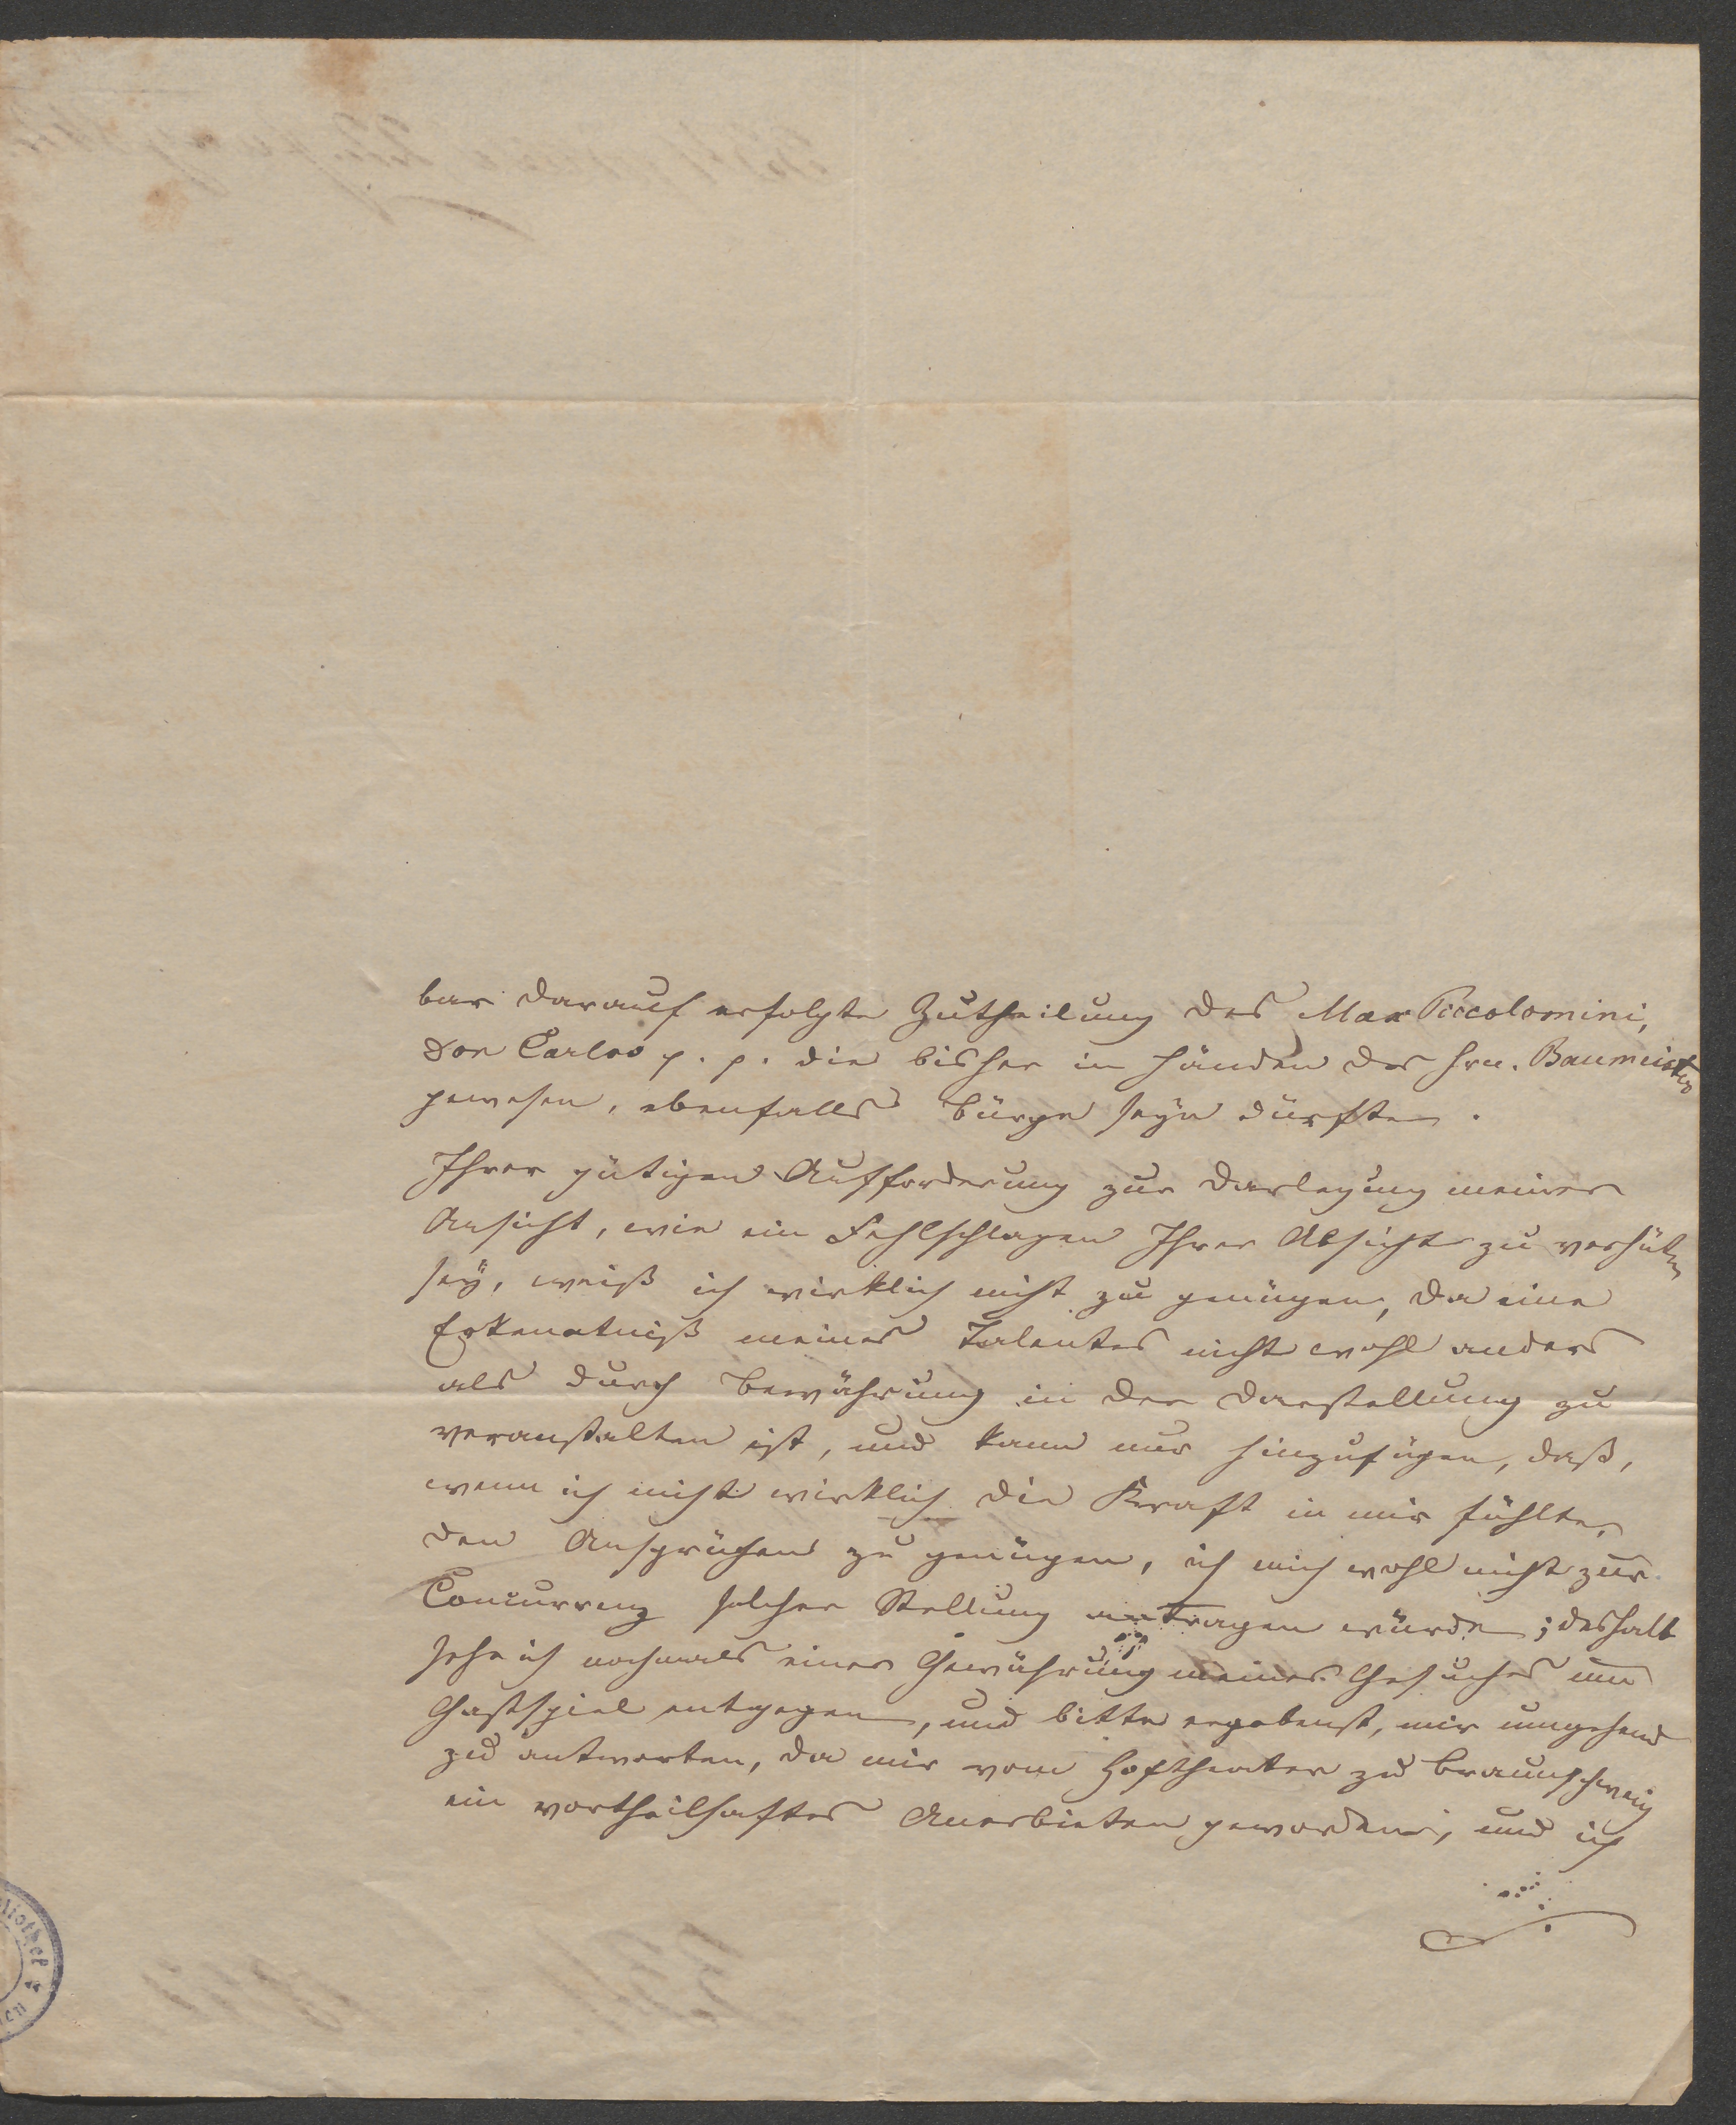 bar darauf erfolgte Zutheilung des Max Piccolomini,
Don Carlos p. p. die bisher in Händen des Hrn. Baumeister
gewesen, ebenfalls Bürge seyn dürften.
Ihrer gütigen Aufforderung zur Darlegung meiner
Ansicht, wie ein Fehlschlagen Ihrer Absicht zu verhüten
sey, weiß ich wirklich nicht zu genügen, da eine
Erkenntniß meines Talentes nicht wohl anders
als durch Bewährung in der Darstellung zu
veranstalten ist, und kann nur hinzufügen, daß,
wenn ich nicht wirklich die Kraft in mir fühlte,
den Ansprüchen zu genügen, ich mich wohl nicht zur
Concurrenz solcher Stellung antragen würde; deshalb
sehe ich nochmals einer Gewährung meines Gesuches um
Gastspiel entgegen, und bitte ergebenst, mir umgehend
zu antworten, da mir vom Hoftheater zu Braunschweig
ein vortheilhaftes Anerbieten geworden, und ich